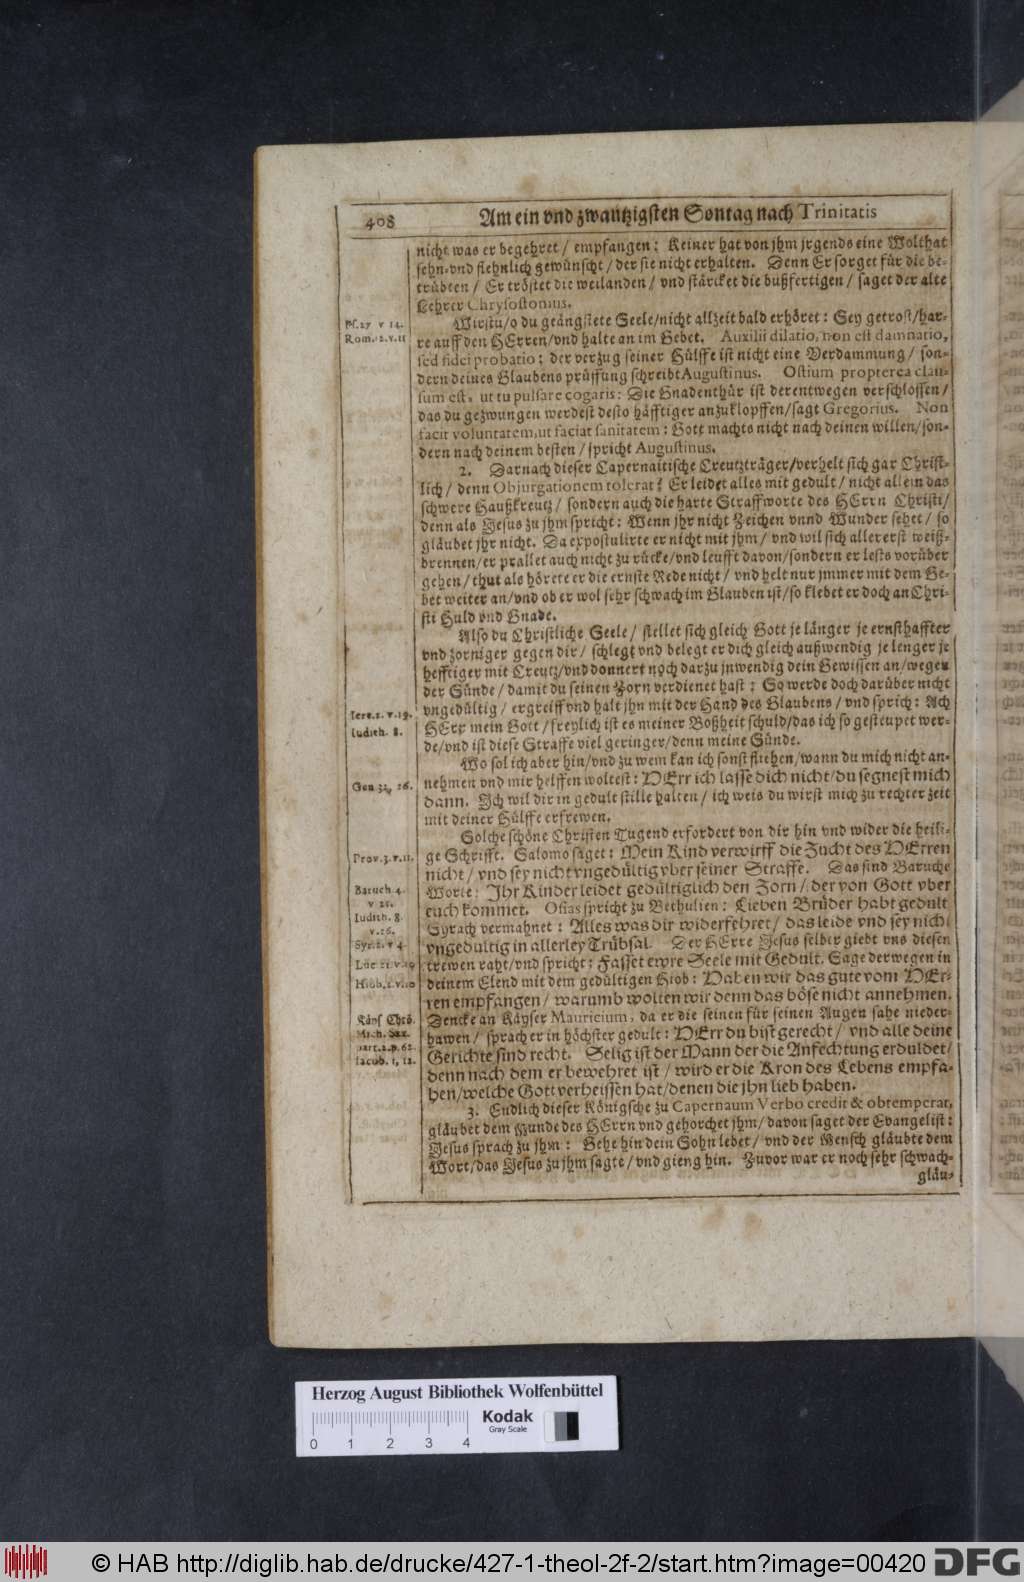 408
Am ein vnd zwantzigsten Sontag nach Trinitatis
nicht was er begehret / empfangen: Keiner hat von jhm jrgends eine Wolthat
sehn- vnd flehnlich gewünscht / der sie nicht erhalten. Denn Er sorget für die be-
trübten / Er tröstet die weilanden / vnd stärcket die bußfertigen / saget der alte
Lehrer Chrysostomus.
Ps. 27 v 14.
Rom. 12. v. 11
Wirstu / o du geängstete Seele / nicht allzeit bald erhöret: Sey getrost / har-
re auff den HErren / vnd halte an im Gebet. Auxilii dilatio, non est damnatio,
sed fidei probatio: der verzug seiner Hülffe ist nicht eine Verdammung / son-
dern deines Glaubens prüffung schreibt Augustinus. Ostium propterea clau-
sum est, ut tu pulsare cogaris: Die Gnadenthür ist derentwegen verschlossen /
das du gezwungen werdest desto häfftiger anzuklopffen / sagt Gregorius. Non
facit voluntatem, ut faciat sanitatem: Gott machts nicht nach deinen willen / son-
dern nach deinem besten / spricht Augustinus.
2. Darnach dieser Capernaitische Creutzträger / verhelt sich gar Christ-
lich / denn Objurgationem tolerat: Er leidet alles mit gedult / nicht allein das
schwere Haußkreutz / sondern auch die harte Straffworte des HErrn Christi /
denn als Jesus zu jhm spricht: Wenn jhr nicht Zeichen vnnd Wunder sehet / so
gläubet jhr nicht. Da expostulirte er nicht mit jhm / vnd wil sich allererst weiß-
brennen / er prallet auch nicht zu rücke / vnd leufft davon / sondern er lests vorüber
gehen / thut als hörete er die ernste Rede nicht / vnd helt nur jmmer mit dem Ge-
bet weiter an / vnd ob er wol sehr schwach im Glauben ist / so klebet er doch an Chri-
sti Huld vnd Gnade.
Also du Christliche Seele / stellet sich gleich Gott je länger je ernsthaffter
vnd zorniger gegen dir / schlegt vnd belegt er dich gleich außwendig je lenger je
hefftiger mit Creutz / vnd donnert noch darzu jnwendig dein Gewissen an / wegen
der Sünde / damit du seinen Zorn verdienet hast: So werde doch darüber nicht
vngedültig / ergreiff vnd halt jhn mit der Hand des Glaubens / vnd sprich: Ach
Iere. 2. v. 19.
HErr mein Gott / freylich ist es meiner Boßheit schuld / das ich so gesteupet wer-
Iudith. 8.
de / vnd ist diese Straffe viel geringer / denn meine Sünde.
Wo sol ich aber hin / vnd zu wem kan ich sonst fliehen / wann du mich nicht an-
Gen. 32, 26.
nehmen vnd mir helffen woltest: HErr ich lasse dich nicht / du segnest mich
dann. Ich wil dir in gedult stille halten / ich weis du wirst mich zu rechter zeit
mit deiner Hülffe erfrewen.
Solche schöne Christen Tugend erfordert von dir hin vnd wider die heili-
Prov. 3. v. 11.
ge Schrifft. Salomo saget: Mein Kind verwirff die Zucht des HErren
nicht / vnd sey nicht vngedültig vber seiner Straffe. Das sind Baruchs
Baruch 4.
v 25.
Worte: Ihr Kinder leidet gedültiglich den Zorn / der von Gott vber
euch kommet. Osias spricht zu Bethulien: Lieben Brüder habt gedult
Iudith. 8.
v. 16.
Syrach vermahnet: Alles was dir widerfehret / das leide vnd sey nicht
Syr. 2. v 4.
vngedultig in allerley Trübsal. Der HErre Jesus selber giebt vns diesen
Luc 21 v. 19
trewen raht / vnd spricht: Fasset ewre Seele mit Gedult. Sage derwegen in
Hiob, 2. v. 10
deinem Elend mit dem gedültigen Hiob: Haben wir das gute vom HEr-
ren empfangen / warumb wolten wir denn das böse nicht annehmen.
Käys Chrö.
Mich. Sax.
part. 2. p. 62.
Iacob. 1, 12.
Dencke an Käyser Mauricium, da er die seinen für seinen Augen sahe nieder-
hawen / sprach er in höchster gedult: HErr du bist gerecht / vnd alle deine
Gerichte sind recht. Selig ist der Mann der die Anfechtung erduldet /
denn nach dem er bewehret ist / wird er die Kron des Lebens empfa-
hen / welche Gott verheissen hat / denen die jhn lieb haben.
3. Endlich dieser Königsche zu Capernaum Verbo credit & obtemperat,
gläubet dem Munde des HErrn vnd gehorchet jhm / davon saget der Evangelist:
Jesus sprach zu jhm: Gehe hin dein Sohn lebet / vnd der Mensch gläubte dem
Wort / das Jesus zu jhm sagte / vnd gieng hin. Zuvor war er noch sehr schwach-
gläu-
Herzog August Bibliothek Wolfenbüttel
Kodak
Gray Scale
0 1 2 3 4
© HAB http://diglib.hab.de/drucke/427-1-theol-2f-2/start.htm?image=00420
DFG